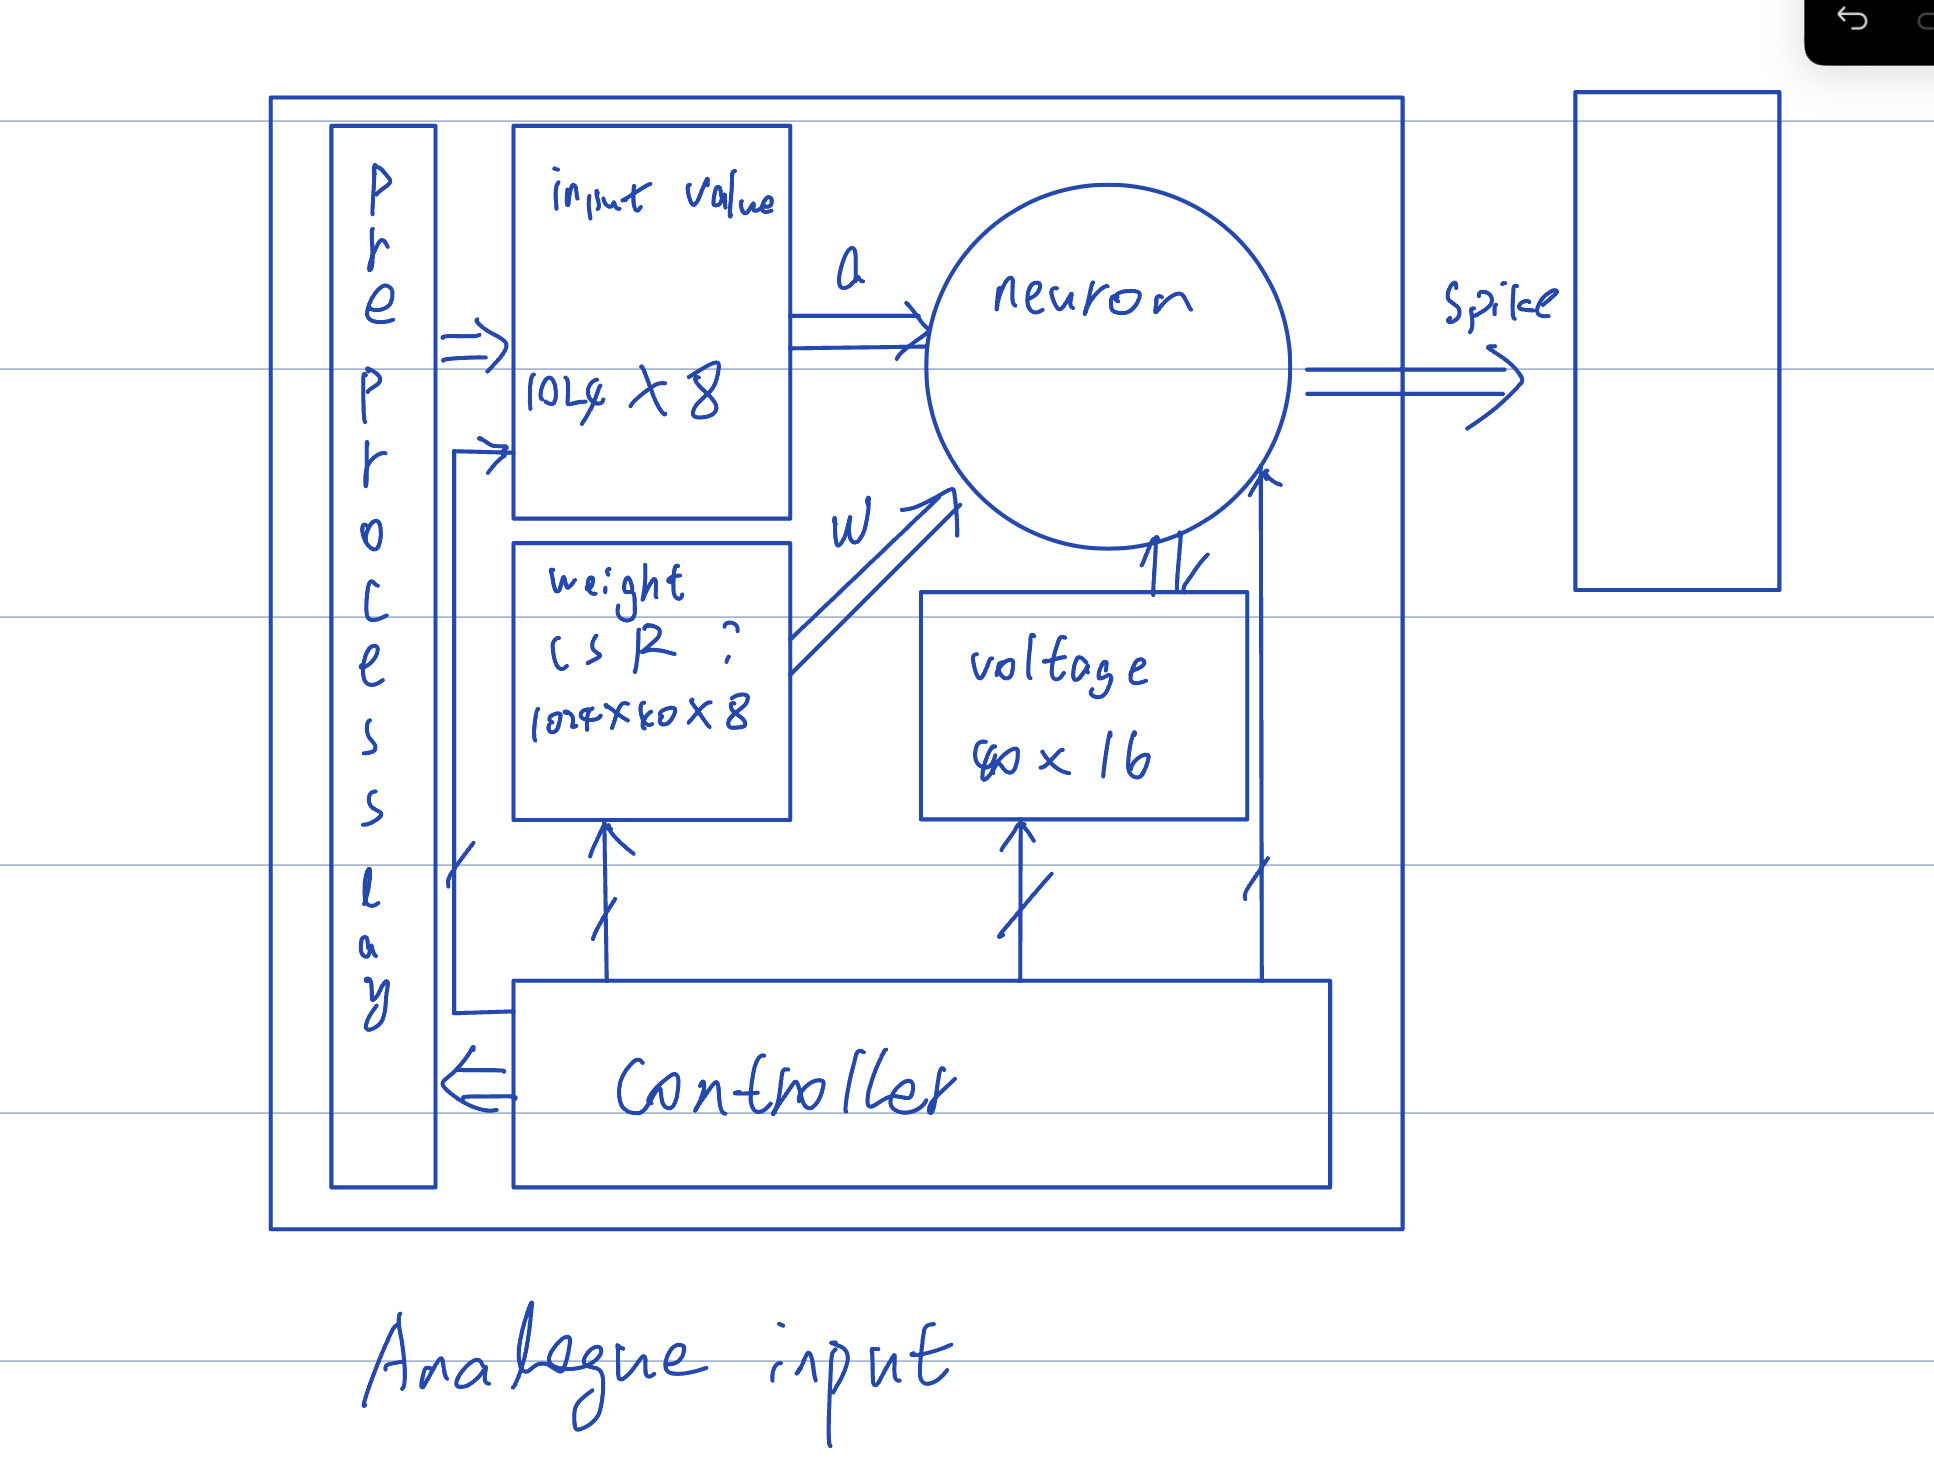 Pre Process lay
input value
1024 X 8
a
neuron
spike
w
weight
CSR ?
1024 X 40 X 8
voltage
40 x 16
Controller
Analogue input